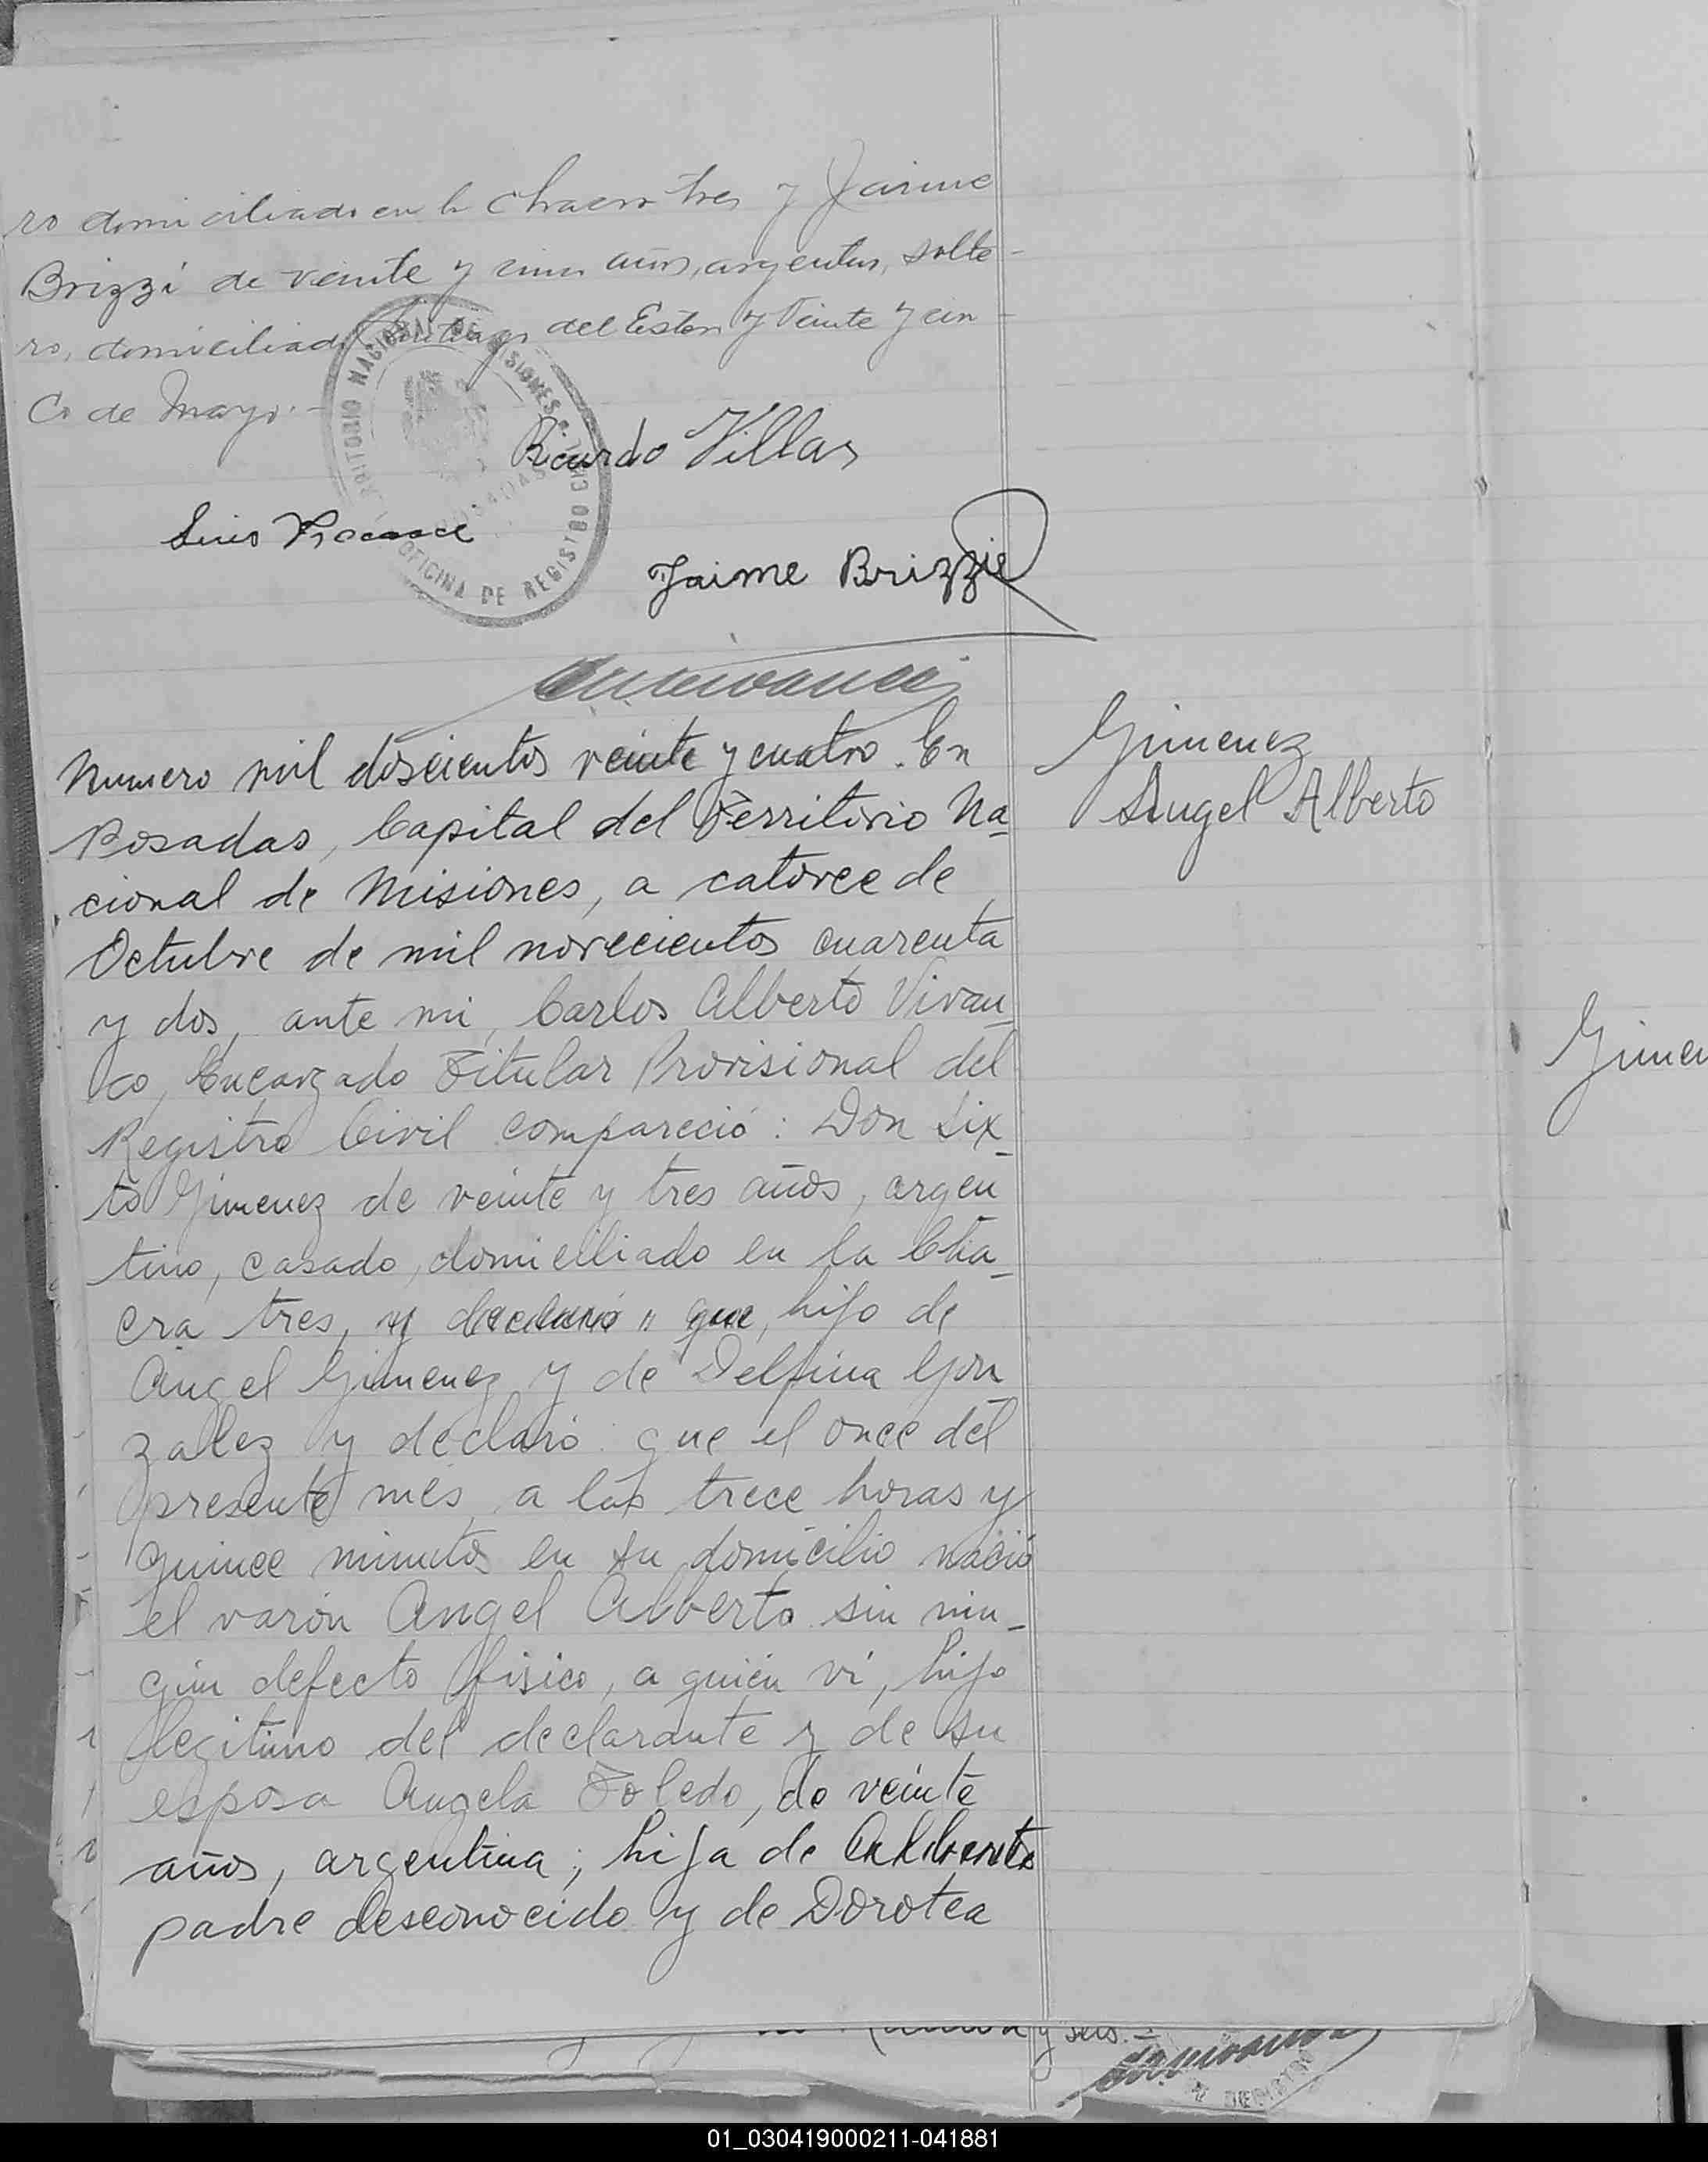 ro domiciliado en la Chacra tres y Jaime
Brizzi de veinte y cinco años, argentino, solte-
ro, domiciliado Santiago del Estero y Veinte y cin-
co de Mayo.-
Ricardo Villar
Luis
Jaime Brizzie
TERRITORIO NACIONAL DE MISIONES
POSADAS
OFICINA DE REGISTRO CIVIL
Numero mil doscientos veinte y cuatro. En
Posadas, Capital del Territorio Na-
cional de Misiones, a catorce de
Octubre de mil novecientos cuarenta
y dos, ante mi, Carlos Alberto Vivan-
co, Encargado Titular Provisional del
Registro Civil compareció: Don Six-
to Gimenez de veinte y tres años, argen-
tino, casado, domiciliado en la Cha-
cra tres, y declaró " que, hijo de
Angel Gimenez y de Delfina Gon-
zalez y declaró: que el once del
presente mes, a las trece horas y
quince minutos en su domicilio nació
el varón Angel Alberto sin nin-
gún defecto fisico, a quién vi, hijo
legitimo del declarante y de su
esposa Angela Toledo, de veinte
años, argentina; hija de
padre desconocido y de Dorotea
Gimenez
Angel Alberto
Gimen
y seis.-
01_030419000211-041881